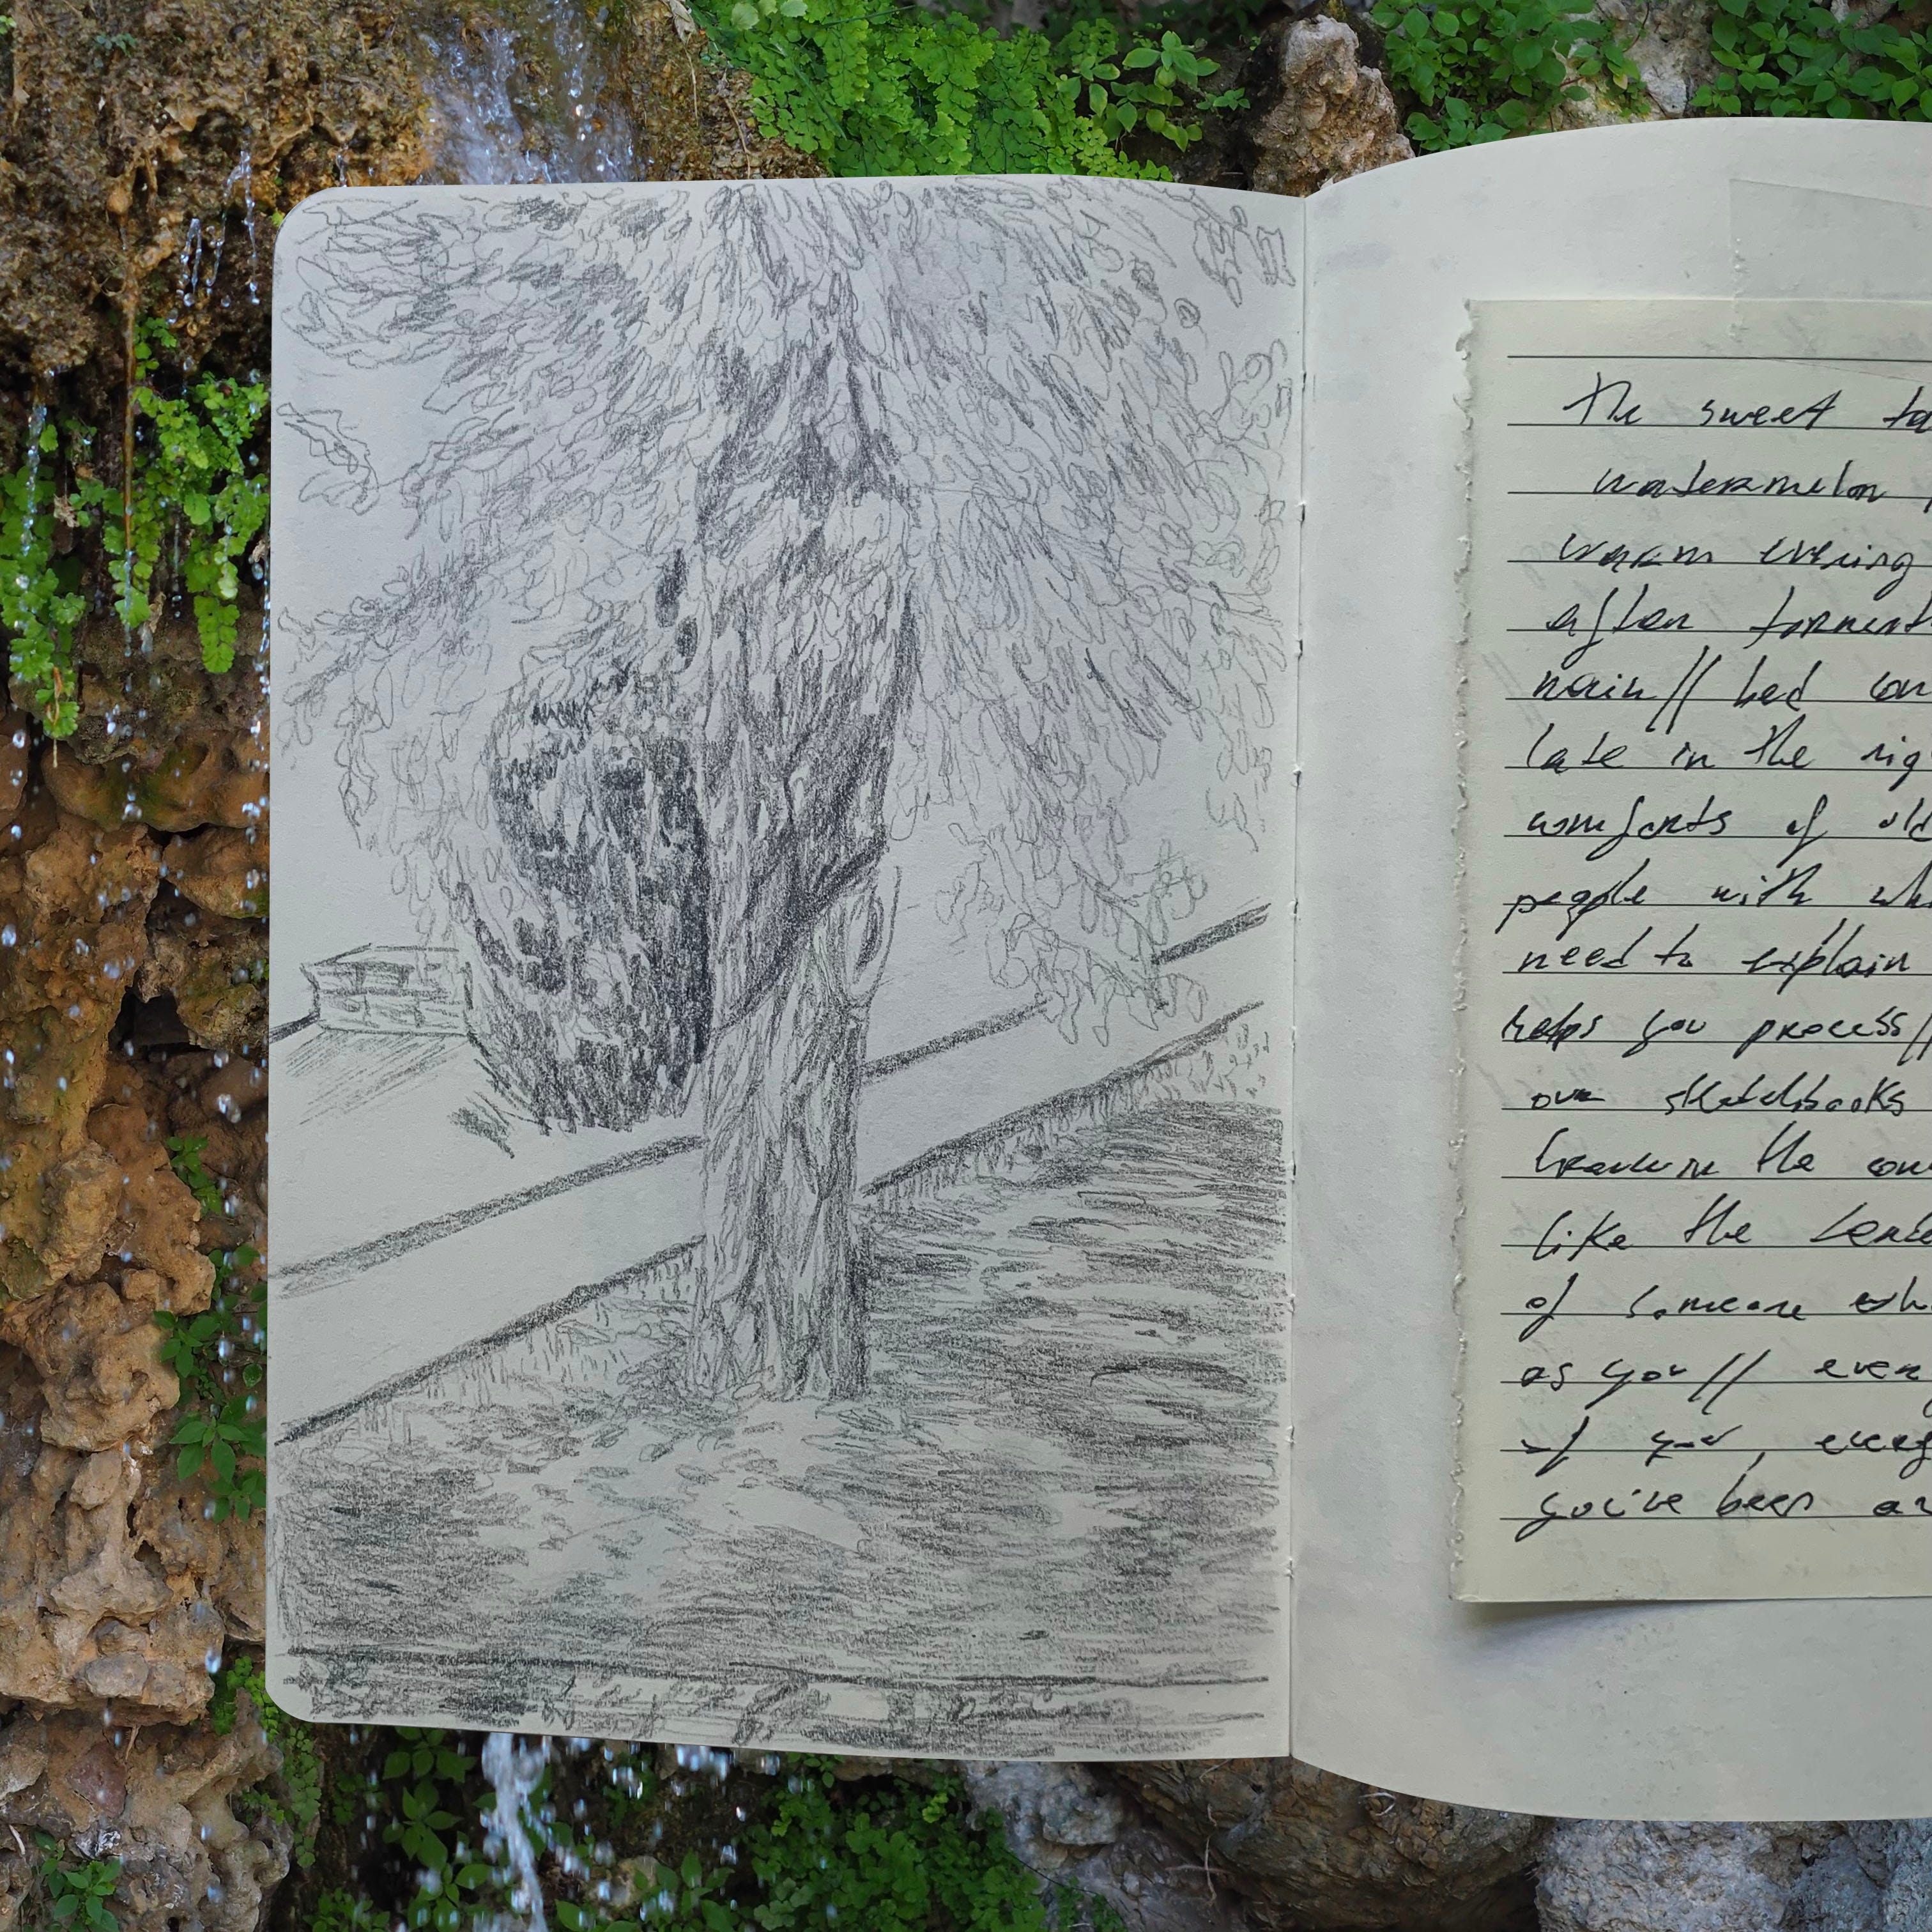 The sweet ta
watermelon
warm evening
after torment
rain// bed con
late in the nig
comforts of old
people with wh
need to explain
helps you process//
our sketchbooks
treasure the con
like the
of someone wh
as you// even
of you, every
you've been ar